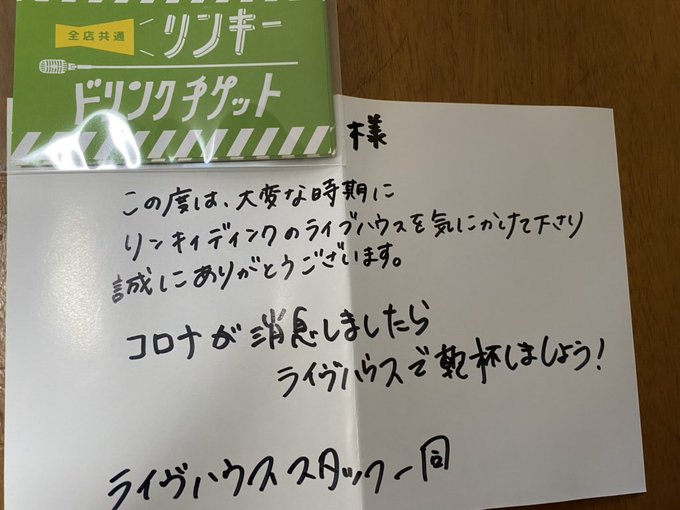 全店共通
リンキー
ドリンクチケット
様
この度は、大変な時期に
リンキィディンクのライブハウスを気にかけて下さり
誠にありがとうございます。
コロナが消息しましたら
ライヴハウスで乾杯しましょう!
ライヴハウススタッフ一同